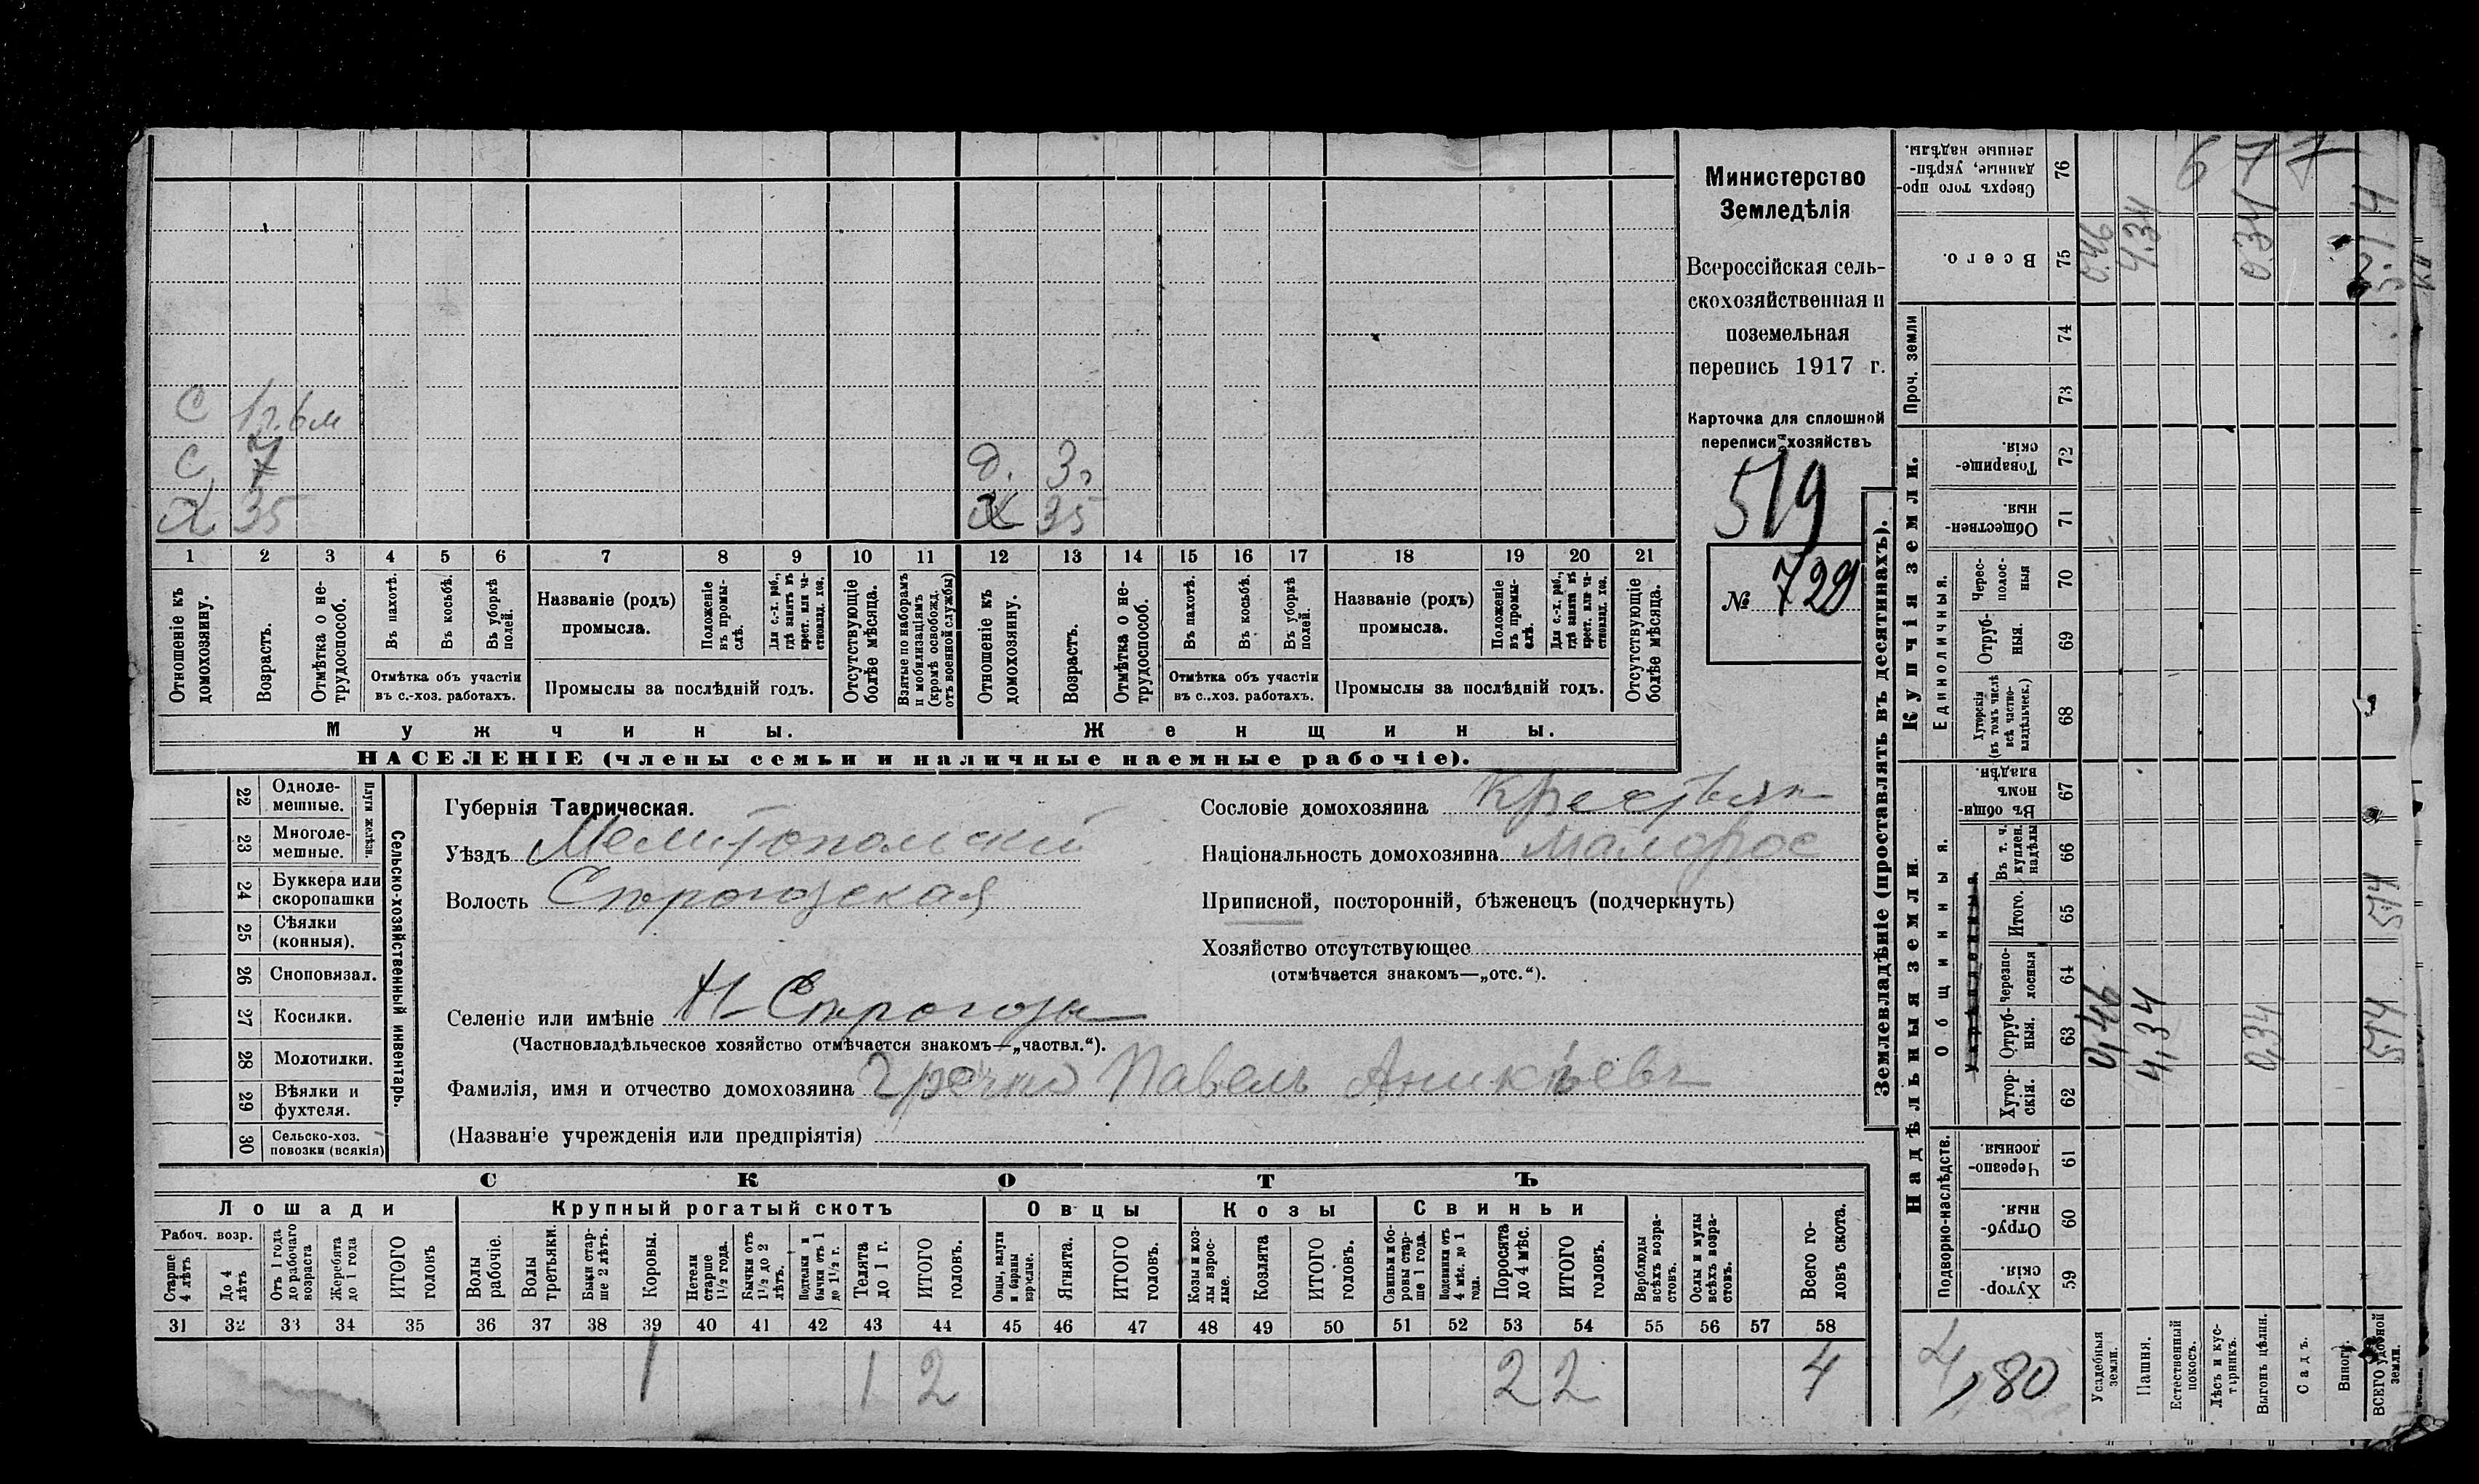 С 1 г. 6 м
С 7 д. 3 г
Х 35 Х 35
1 2 3 4 5 6 7 8 9 10 11 12 13 14 15 16 17 18 19 20 21
Отношеніе къ домохозяину.
Возрастъ.
Отмѣтка о не-
трудоспособ.
Въ пахотѣ.
Въ косьбѣ.
Въ уборкѣ полей.
Отмѣтка объ участіи
въ с.-хоз. работахъ.
Названіе (родъ)
промысла.
Положеніе въ промы-
слѣ.
Для с.-х. раб.,
гдѣ занятъ въ
крест. или ча-
стновлад. хоз.
Промыслы за послѣдній годъ.
Отсутствующіе
болѣе мѣсяца.
Взятые по наборамъ
и мобилизаціямъ
(кромѣ освобожд.
отъ военной службы)
Отношеніе къ
домохозяину.
Возрастъ.
Отмѣтка о не-
трудоспособ.
Въ пахотѣ.
Въ косьбѣ.
Въ уборкѣ
полей.
Отмѣтка объ участіи
въ с..хоз. работахъ.
Названіе (родъ)
промысла.
Положеніе
въ промы-
слѣ.
Для с.-х. раб.,
гдѣ занята въ
крест. или ча-
стновлад. хоз.
Промыслы за послѣдній годъ.
Отсутствующіе
болѣе мѣсяца.
Мужчины.
Женщины.
НАСЕЛЕНІЕ (члены семьи и наличные наемные рабочіе).
Министерство
Земледѣлія
Всероссійская сель-
скохозяйственная и
поземельная
перепись 1917 г.
Карточка для сплошной
переписи хозяйствъ
519
№ 729
22 Одноле-
мешные.
23 Многоле-
мешные.
Плуги желѣзн.
24 Буккера или
скоропашки
25 Сѣялки
(конныя).
26 Сноповязал.
27 Косилки.
28 Молотилки.
29 Вѣялки и
фухтеля.
30 Сельско-хоз.
повозки (всякія)
Сельско-хозяйственный инвентарь.
Губернія Таврическая.
Уѣздъ Мелитопольскій
Волость Строгозская
Сословіе домохозяина Крестьян
Національность домохозяина малорос
Приписной, посторонній, бѣженецъ (подчеркнуть)
Хозяйство отсутствующее
(отмѣчается знакомъ—„отс.“).
Селеніе или имѣніе Н-Строгозы
(Частновладѣльческое хозяйство отмѣчается знакомъ—„частвл.“).
Фамилія, имя и отчество домохозяина Павелъ Аникѣевъ
(Названіе учрежденія или предпріятія)
СКОТЪ
Лошади
Крупный рогатый скотъ
Овцы
Козы
Свиньи
Рабоч. возр.
Старше
4 лѣтъ
До 4
лѣтъ
Отъ 1 года
до рабочаго
возраста
Жеребята
до 1 года
ИТОГО
головъ
Волы
рабочіе.
Волы
третьяки.
Быки стар-
ше 2 лѣтъ.
Коровы.
Нетели
старше
1½ года.
Бычки отъ
1½ до 2
лѣтъ.
Подтелки и
бычки отъ 1
до 1½ г.
Телята
до 1 г.
ИТОГО
головъ.
Овцы, валухи
и бараны
взрослые.
Ягнята.
ИТОГО
головъ.
Козы и коз-
лы взрос-
лые.
Козлята
ИТОГО
головъ.
Свиньи и бо-
ровы стар-
ше 1 года.
Подсвинки отъ
4 мѣс. до 1
года.
Поросята
до 4 мѣс.
ИТОГО
головъ.
Верблюды
всѣхъ возра-
стовъ.
Ослы и мулы
всѣхъ возра-
стовъ.
Всего го-
ловъ скота.
31 32 33 34 35 36 37 38 39 40 41 42 43 44 45 46 47 48 49 50 51 52 53 54 55 56 57 58
1 1 2 2 2 4
Землевладѣніе (проставлять въ десятинахъ).
Надѣльныя земли.
Купчія земли.
Проч. земли
Подворно-наслѣдств.
Общинныя.
Укрѣпленныя.
Единоличныя.
Хутор-
скія. 59
Отруб-
ныя. 60
Черезпо-
лосныя 61
Хутор-
скія. 62
Отруб-
ныя. 63
Черезпо-
лосныя 64
Итого. 65
Въ т. ч.
куплен.
надѣлы 66
Въ общи-
номъ
владѣн. 67
Хуторскія
(въ томъ числѣ
всѣ частно-
владѣльческ.) 68
Отруб-
ныя. 69
Черес-
полос-
ныя 70
Обществен-
ныя. 71
Товарище-
скія 72
73
74
Всего. 75
Сверхъ того про-
данные, укрѣп-
ленные надѣлы. 76
4,80
Усадебныя
земли. 0,46 0,46
Пашня. 4,34 4,34
Естественный
покосъ.
Лѣсъ и кус-
тарникъ.
Выгонъ цѣлин. 0,34 0,34
Садъ.
Виногр.
ВСЕГО удобной
земли. 5,14 5,14 5,14
6 7 7